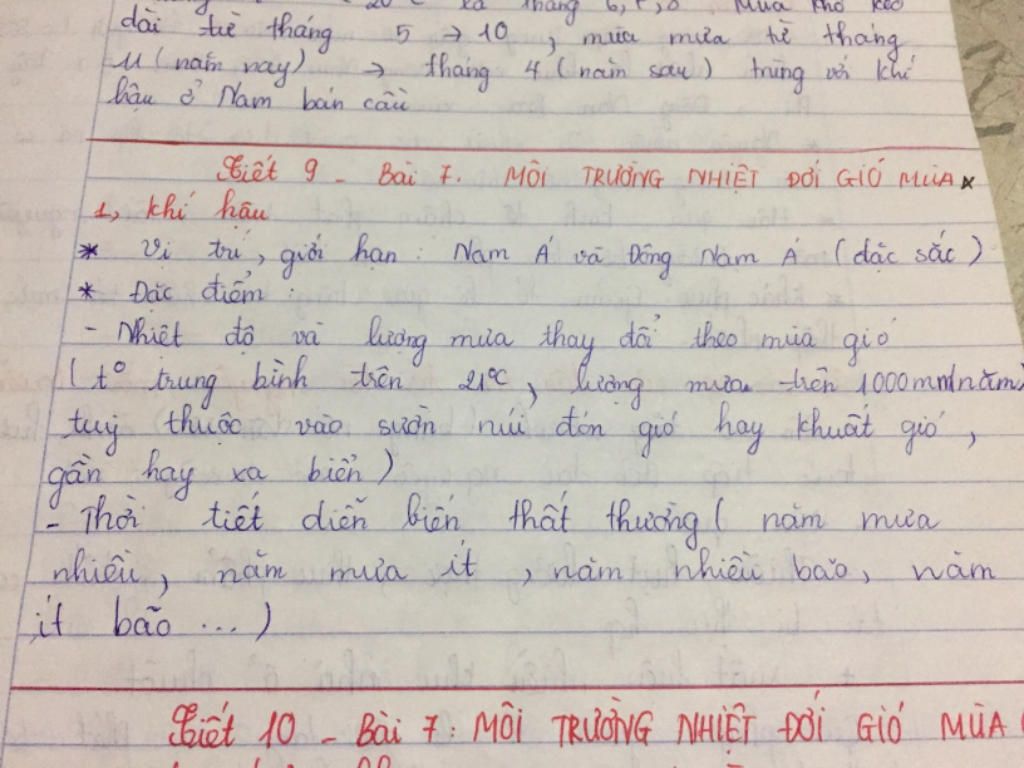 20°C xa tháng 6,7,8 Mùa khô kéo
dài từ tháng 5 → 10, mùa mưa từ tháng
11 (năm nay) → tháng 4 (năm sau) trùng với khí
hậu ở Nam bán cầu
Tiết 9 - Bài 7. MÔI TRƯỜNG NHIỆT ĐỚI GIÓ MÙA
1, khí hậu
* Vị trí, giới hạn: Nam Á và Đông Nam Á (đặc sắc)
* Đặc điểm:
- Nhiệt độ và lượng mưa thay đổi theo mùa gió
(t° trung bình trên 21°C, lượng mưa trên 1000mm/năm)
tuỳ thuộc vào sườn núi đón gió hay khuất gió,
gần hay xa biển)
- Thời tiết diễn biến thất thường (năm mưa
nhiều, năm mưa ít, năm nhiều bão, năm
ít bão ...)
Tiết 10 - Bài 7: MÔI TRƯỜNG NHIỆT ĐỚI GIÓ MÙA